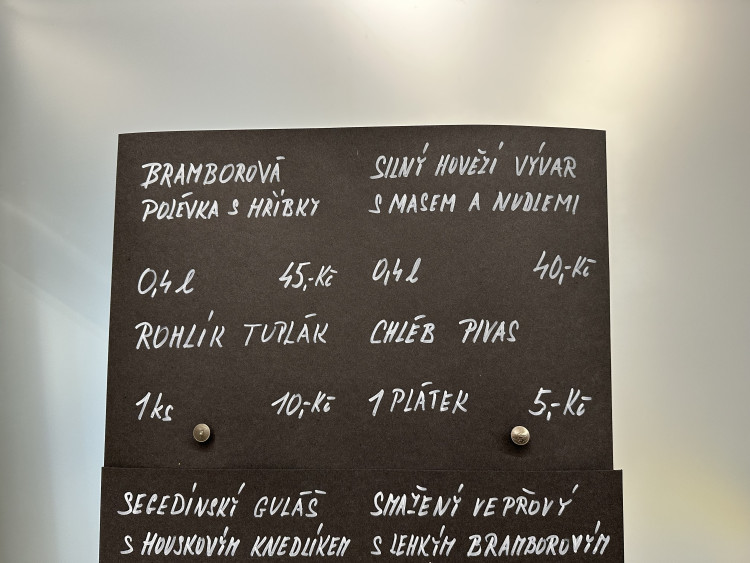 BRAMBOROVÁ
POLÉVKA S HŘÍBKY
0,4 l 45,-Kč
SILNÝ HOVĚZÍ VÝVAR
S MASEM A NUDLEMI
0,4 l 40,-Kč
ROHLÍK TUPLÁK
1 ks 10,-Kč
CHLÉB PIVAS
1 PLÁTEK 5,-Kč
SEGEDÍNSKÝ GULÁŠ
S HOUSKOVÝM KNEDLÍKEM
SMAŽENÝ VEPŘOVÝ
S LEHKÝM BRAMBOROVÝM